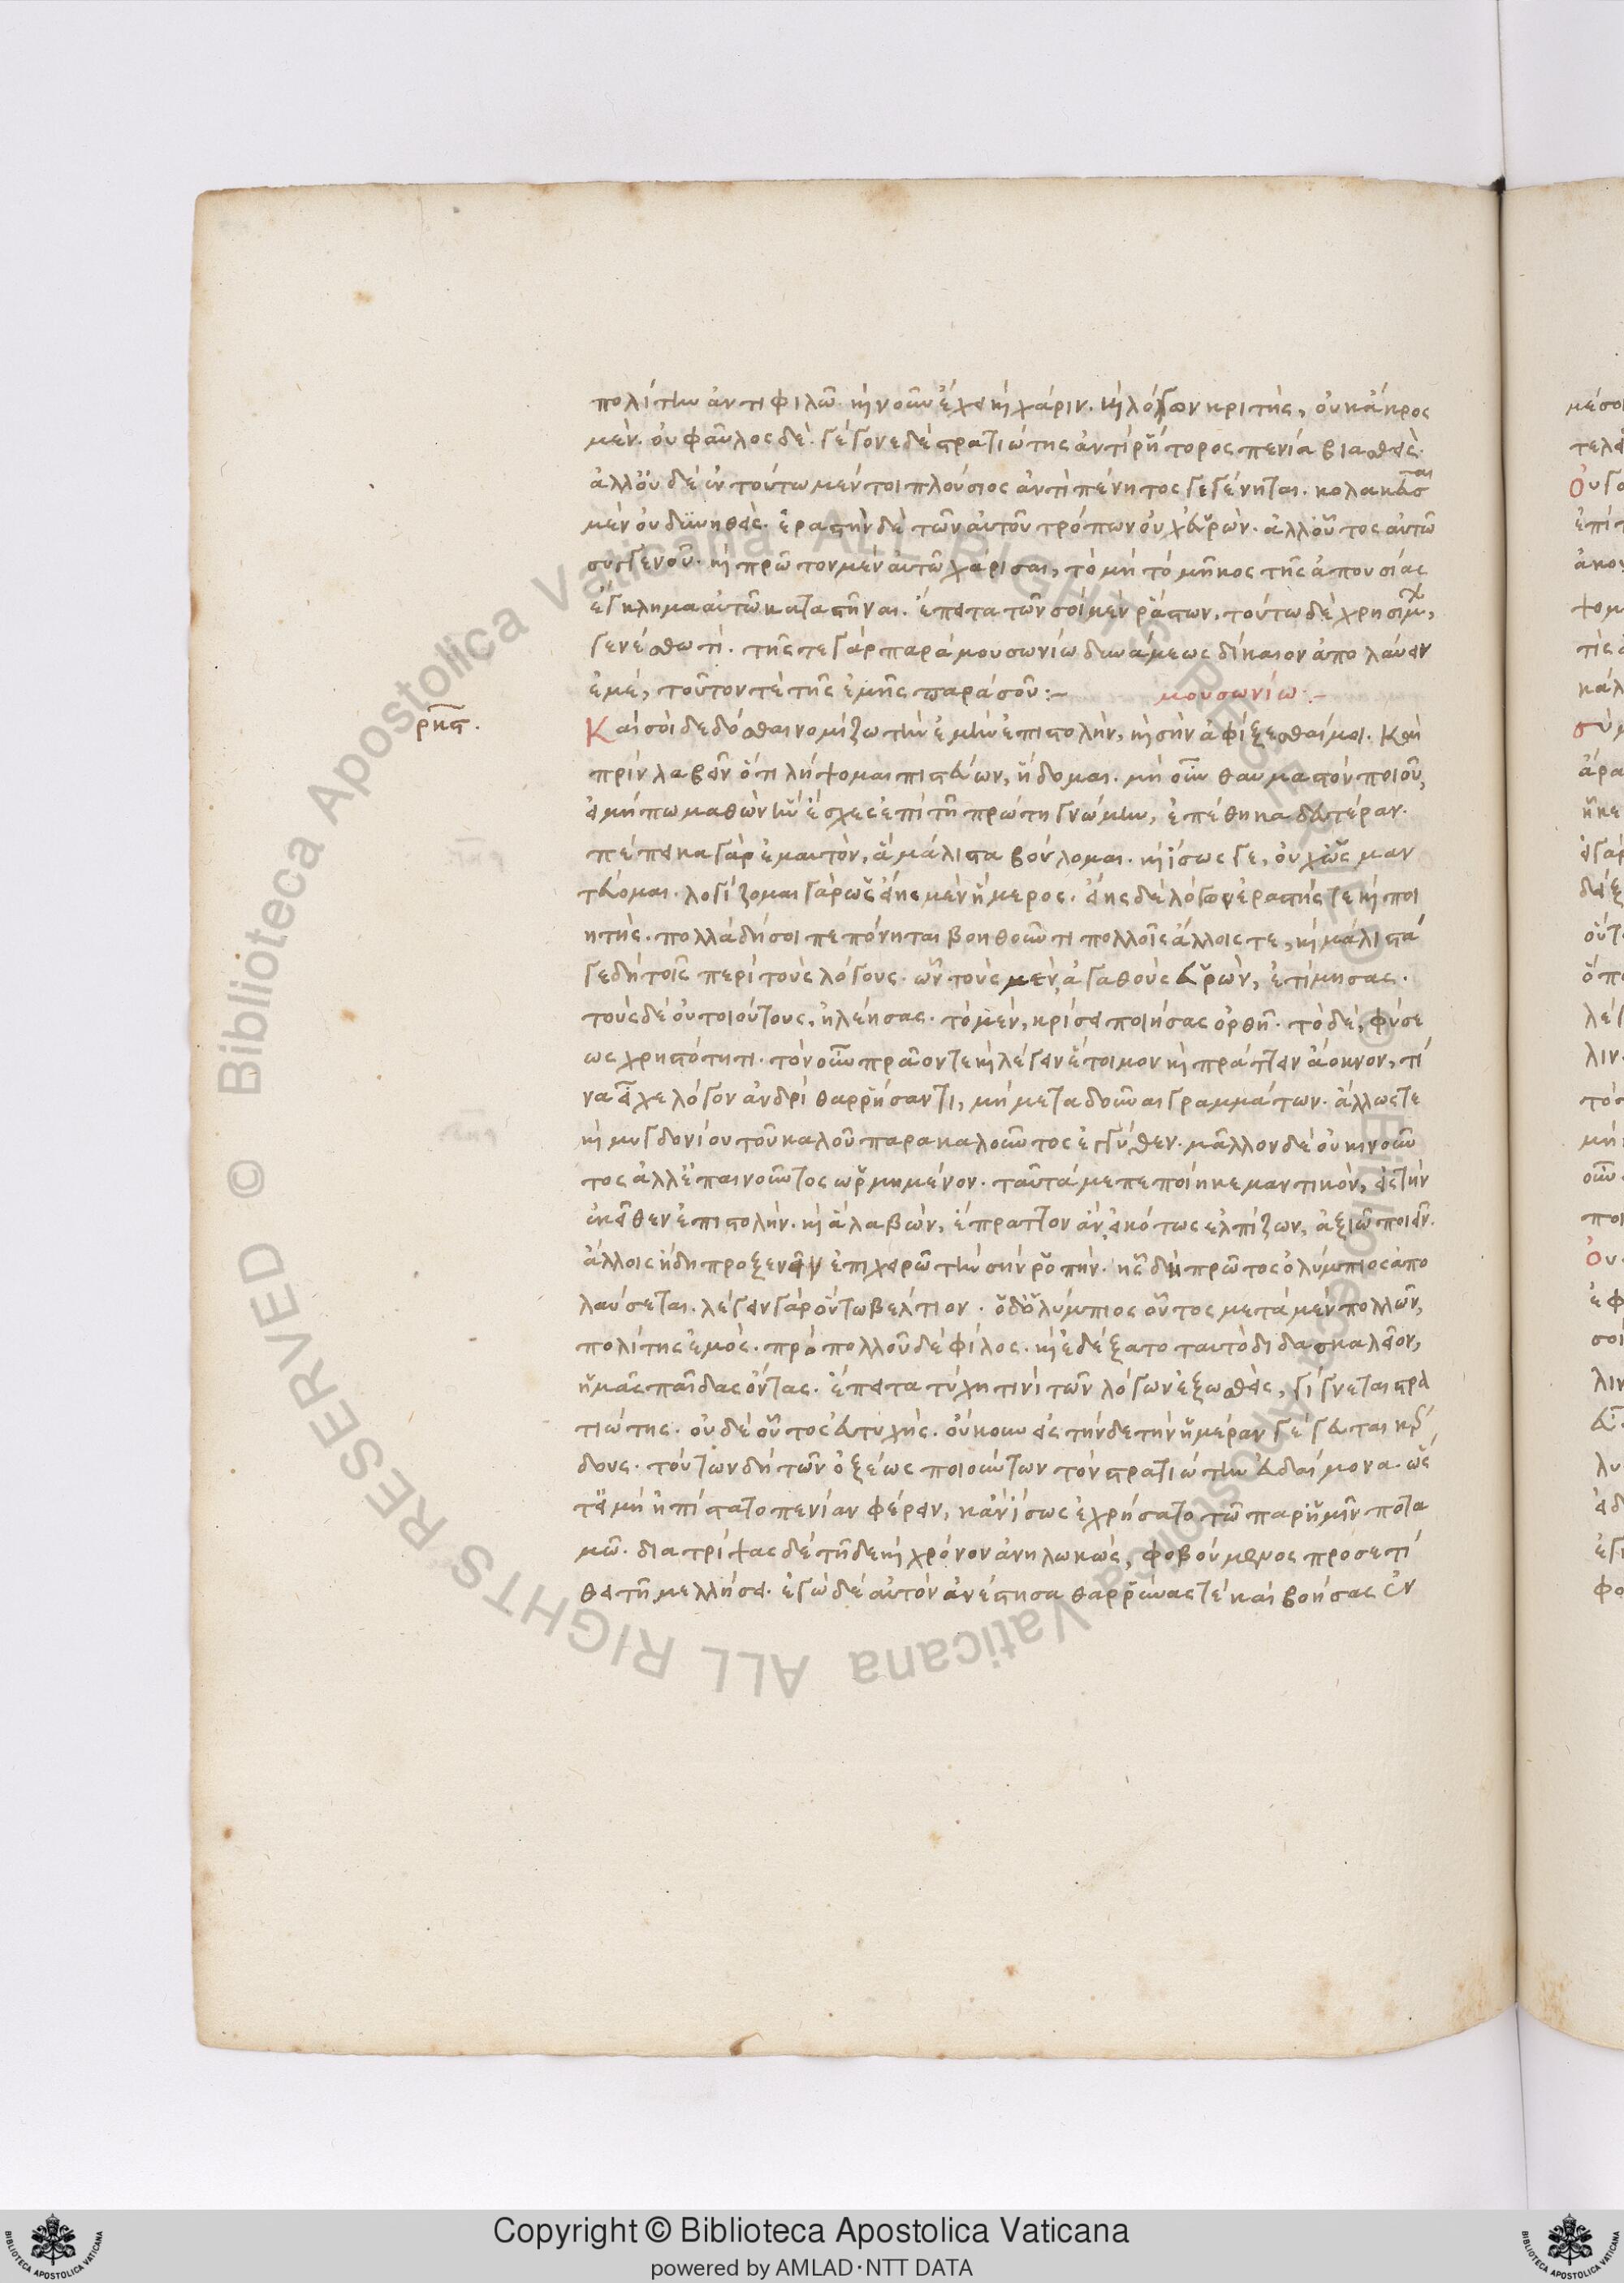 πολίτην ἀντιφιλῶ. καὶ νοῦν ἔχει καὶ χάριν. καὶ λόγων κριτὴς, οὐκ ἄκρος
μὲν. οὐ φαῦλος δὲ. γέγονε δὲ στρατιώτης ἀντὶ ῥήτορος πενία βιασθεὶς.
ἀλλ' οὐδὲ ἐν τούτω μέντοι πλούσιος ἀντὶ πένητος γεγένηται. κολακεῦσαι
μὲν οὐ δυνηθεὶς. ἐραστὴν δὲ τῶν αὐτοῦ τρόπων οὐχ εὑρὼν. ἀλλ' οὗτος αὐτῶ
συγγενοῦ. καὶ πρῶτον μὲν αὐτῶ χάρισαι, τὸ μὴ τὸ μῆκος τῆς ἀπουσίας
ἔγκλημα αὐτῶ καταστῆναι. ἔπειτα τῶν σοὶ μὲν ῥάστων, τούτω δὲ χρησίμων,
γενέσθω τί. τῆς τε γὰρ παρὰ μουσωνίω δυνάμεως δίκαιον ἀπολαύειν
ἐμέ, τοῦτόν τε τῆς ἐμῆς παρὰ σοῦ:– μουσωνίω:–
ρκϛ.
Καί σοι δεδόσθαι νομίζω τὴν ἐμὴν ἐπιστολὴν, καὶ σὴν ἀφίξεσθαί μοι. καὶ
πρὶν λαβεῖν ὅτι λήψομαι πιστεύων, ἥδομαι. μὴ οὖν θαυμαστὸν ποιοῦ,
εἰ μήπω μαθὼν ἣν ἔσχες ἐπὶ τῆ πρώτη γνώμην, ἐπέθηκα δευτέραν.
πέπεικα γὰρ ἐμαυτὸν, ἃ μάλιστα βούλομαι. καὶ ἴσως γε, οὐ χεῖρον μαν
τεύομαι. λογίζομαι γὰρ ὡς εἶης μὲν ἥμερος. εἶης δὲ λόγων ἐραστής τε καὶ ποι
ητὴς. πολλὰ δή σοι πεπόνηται βοηθοῦντι πολλοῖς ἄλλοις τε, καὶ μάλιστά
γε δὴ τοῖς περὶ τοὺς λόγους. ὧν τοὺς μὲν ἀγαθοὺς εὑρὼν, ἐτίμησας.
τοὺς δὲ οὐ τοιούτους, ἠλέησας. τὸ μὲν, κρίσει ποιήσας ὀρθῆ. τὸ δὲ, φύσε
ως χρηστότητι. τὸν οὖν πρᾶον τε καὶ λέγειν ἕτοιμον καὶ πράττειν ἄοκνον, τί
να εἶχε λόγον ἀνδρὶ θαρρήσαντι, μὴ μεταδοῦναι γραμμάτων. ἄλλως τε
καὶ μυγδονίου τοῦ καλοῦ παρακαλοῦντος ἐγγύθεν. μᾶλλον δὲ οὐ κινοῦν
τος ἀλλ' ἐπαινοῦντος ὡρμημένον. ταῦτά με πεποίηκε μαντικὸν, εἰς τὴν
ἐκεῖθεν ἐπιστολὴν. καὶ ἃ λαβὼν, ἔπραττον ἂν, εἰκότως ἐλπίζων, ἀξιῶ ποιεῖν.
ἄλλοις ἤδη προξενεῖν ἐπιχειρῶ τὴν σὴν ῥοπὴν. ἧς δὴ πρῶτος ὀλύμπιος ἀπο
λαύσεται. λέγειν γὰρ οὕτω βέλτιον. ὁ δ' ὀλύμπιος οὗτος μετὰ μὲν πολλῶν,
πολίτης ἐμὸς. πρὸ πολλοῦ δὲ φίλος. καὶ ἐδέξατο ταυτὸ διδασκαλεῖον,
ἡμᾶς παῖδας ὄντας. ἔπειτα τύχη τινὶ τῶν λόγων ἐξωσθεὶς, γίγνεται στρα
τιώτης. οὐδὲ οὗτος εὐτυχὴς. οὔκουν εἰς τήνδε τὴν ἡμέραν γέγευται κέρ
δους. τούτων δὴ τῶν ὀξέως ποιούντων τὸν στρατιώτην εὐδαίμονα. ὡς
τε εἰ μὴ ἠπίστατο πενίαν φέρειν, κἂν ἴσως ἐχρήσατο τῶ παρ' ἡμῖν ποτα
μῶ. διατρίψας δὲ τῆδε καὶ χρόνον ἀνηλωκὼς, φοβούμενος προσετί
θει τῆ μελλήσει. ἐγὼ δὲ αὐτὸν ἀνέστησα θαρρύνας τὲ καὶ βοήσας ἐν